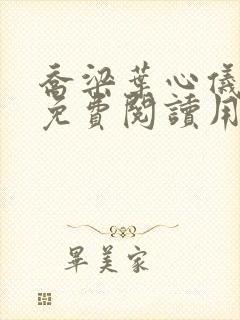 喬梁葉心儀
免費閱讀用
畢美家